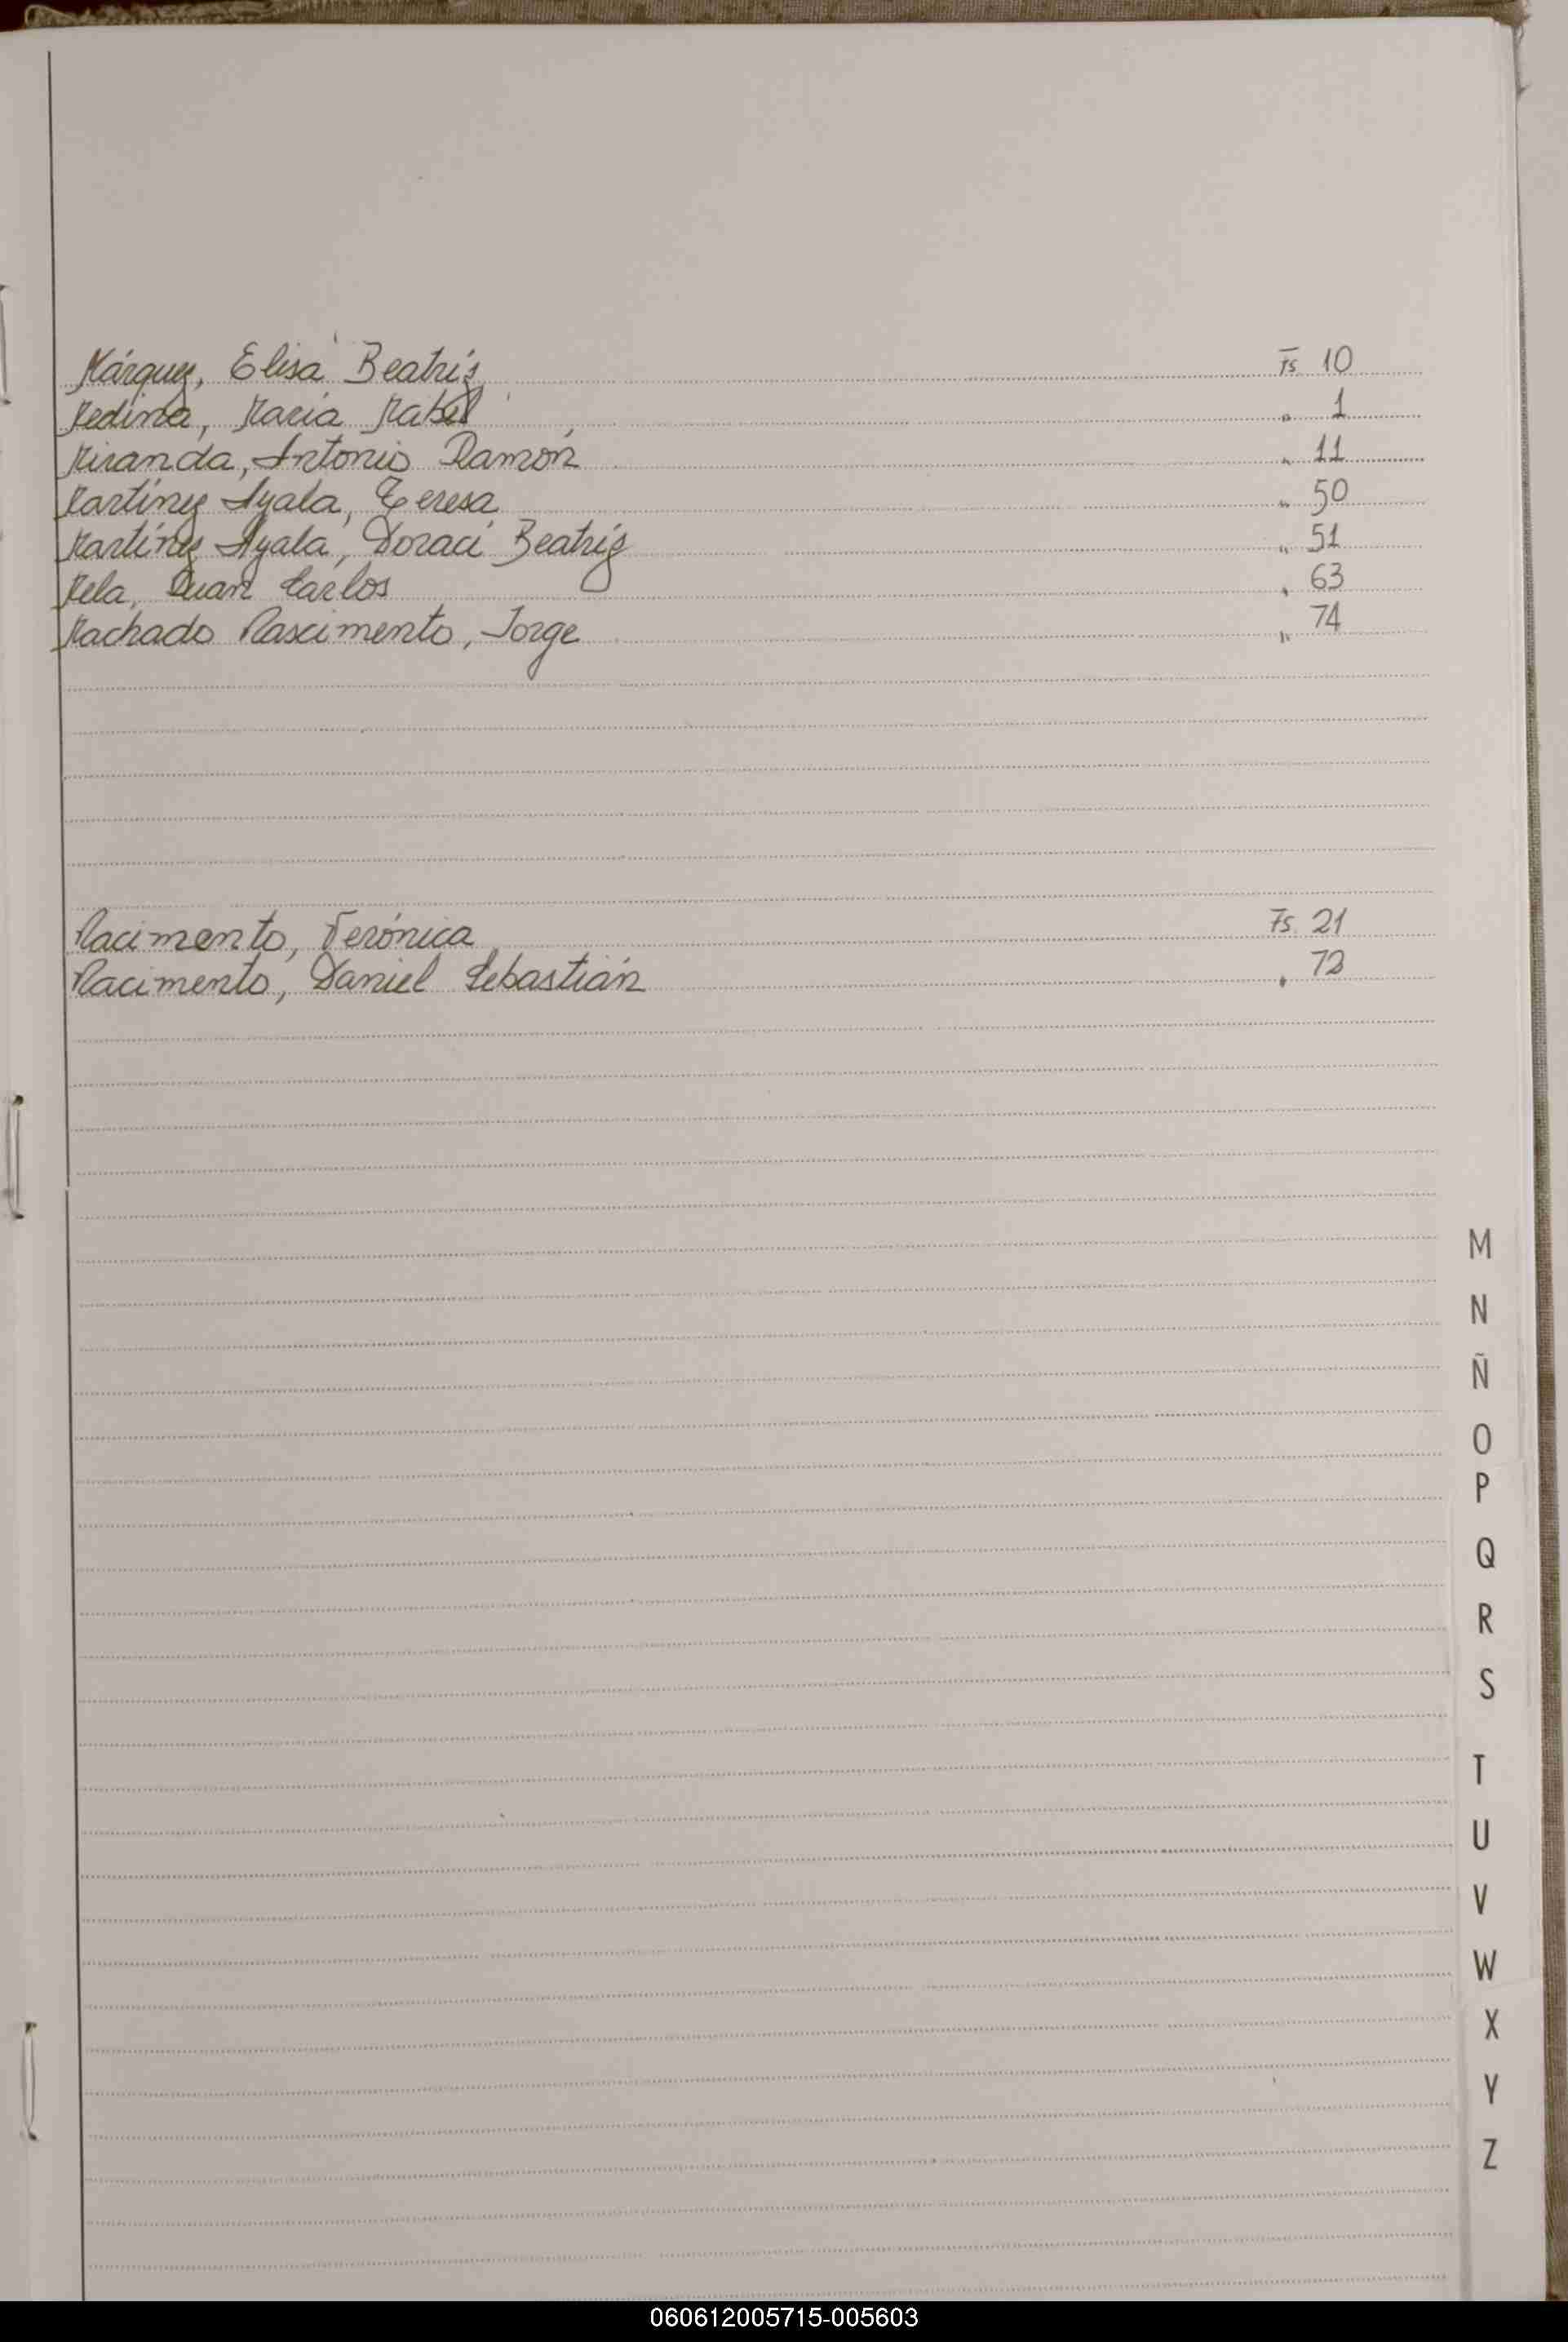 Márquez, Elisa Beatriz Fs. 10
Medina, María Mabel " 1
Miranda, Antonio Ramón " 11
Martínez Ayala, Teresa " 50
Martínez Ayala, Doraci Beatriz " 51
Mela, Juan Carlos " 63
Machado Nascimento, Jorge " 74
Nacimento, Verónica Fs. 21
Nacimento, Daniel Sebastián " 72
M
N
Ñ
O
P
Q
R
S
T
U
V
W
X
Y
Z
060612005715-005603